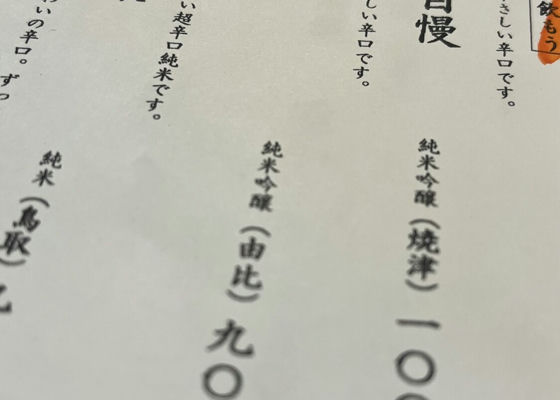 飲もう
さしい辛口です。
自慢
しい辛口です。
純米吟醸(焼津)一〇〇
い超辛口純米です。
純米吟醸(由比)九〇
いの辛口。ずっ
純米(鳥取)